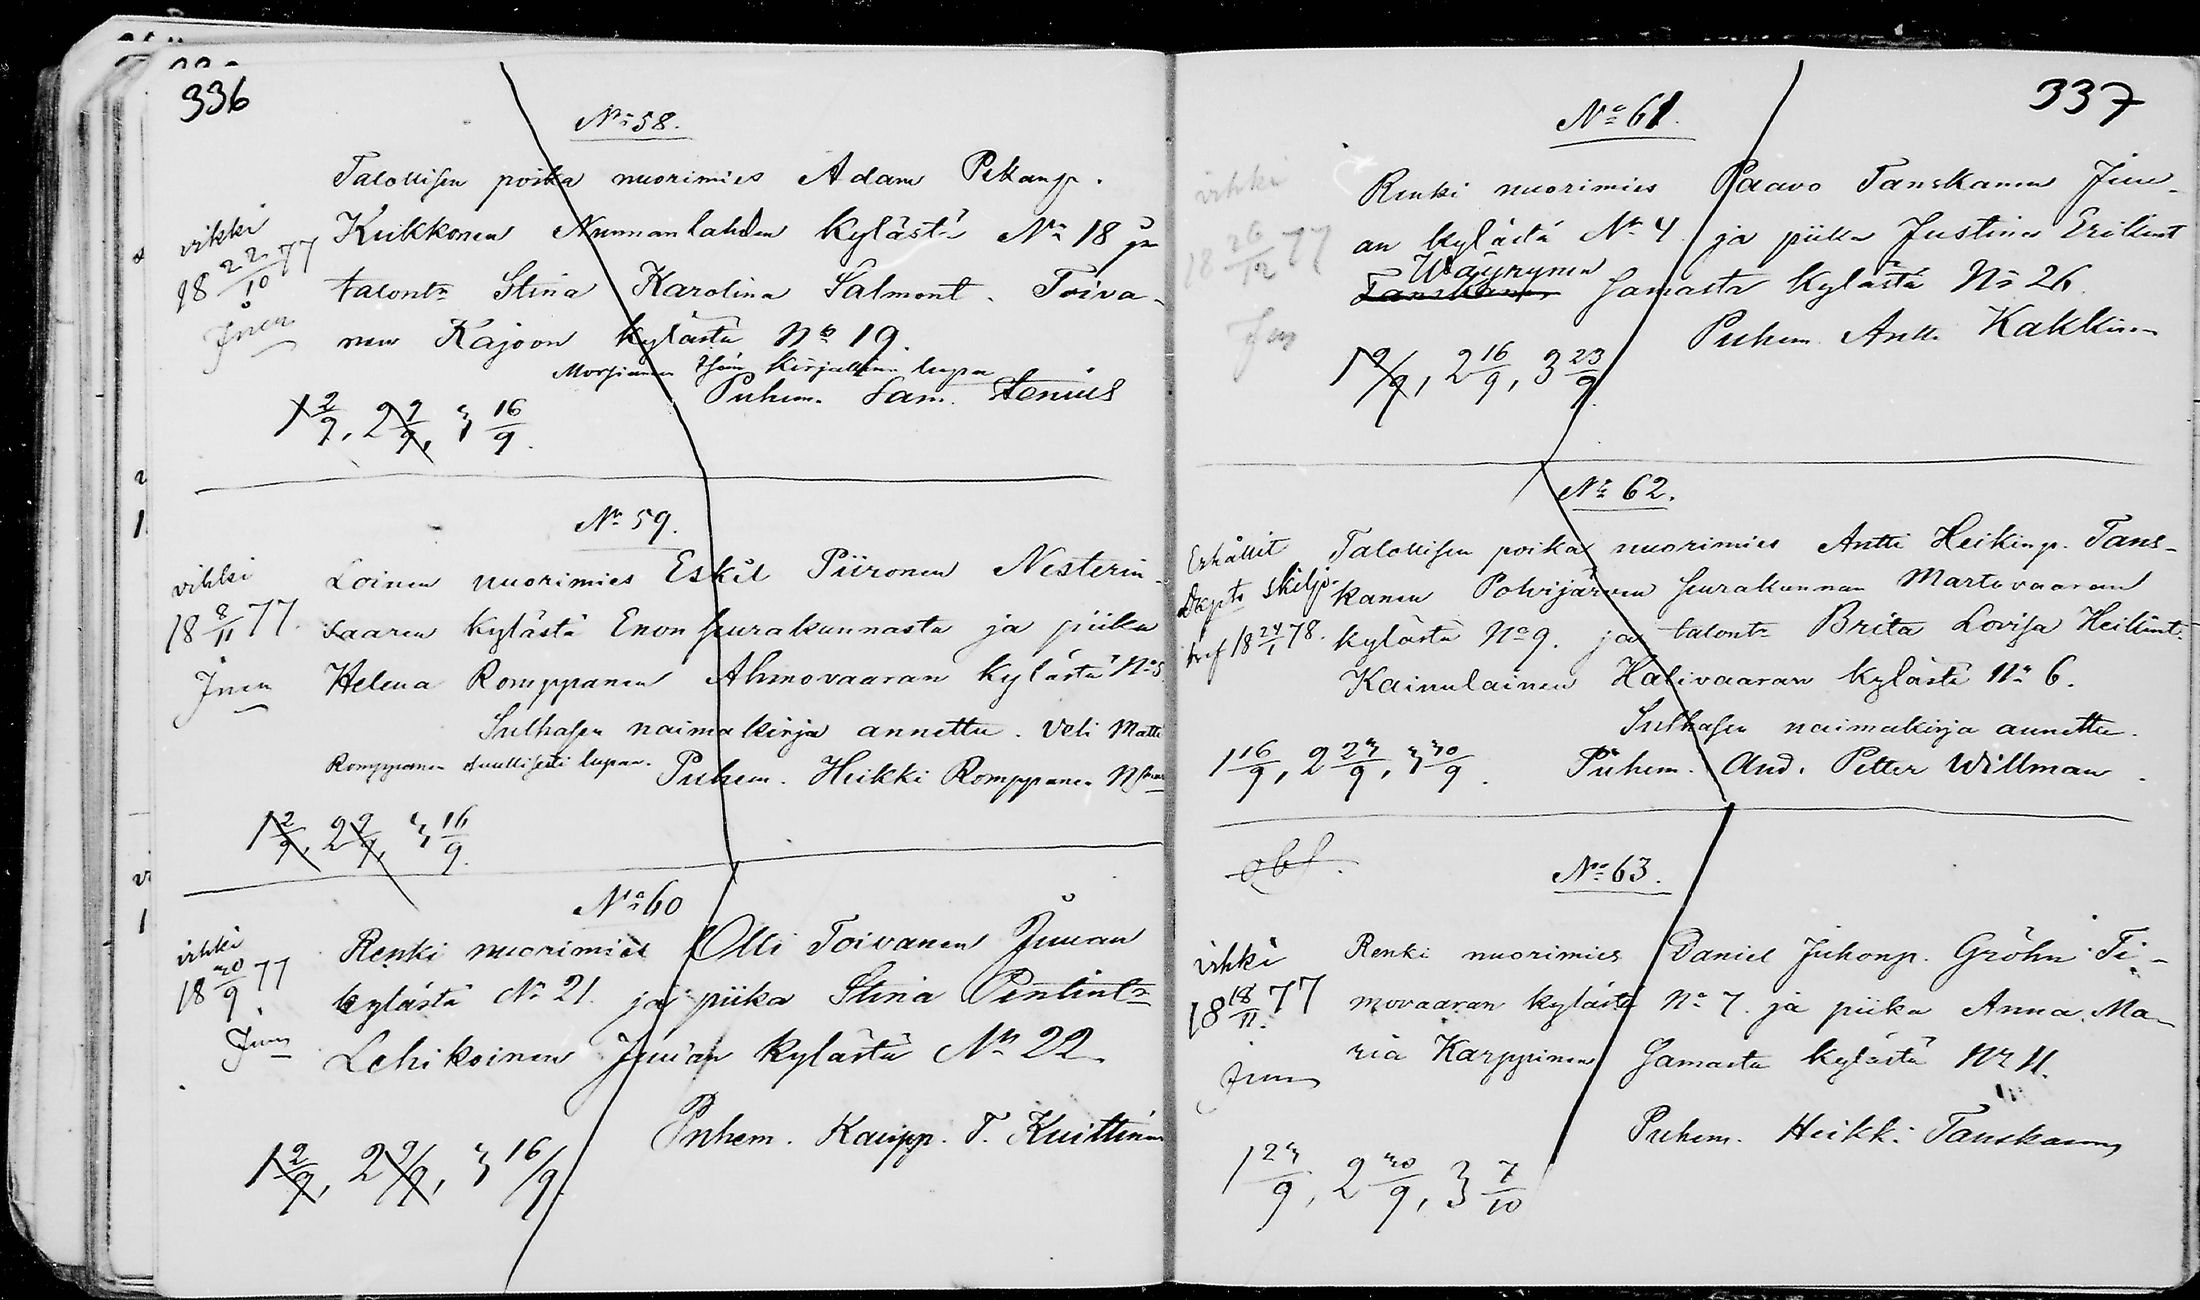 336
No 58.
Talollisen poika nuorimies Adam Pekanp.
Kuikkonen Nunnanlahden kylästä No 18 ja
talontr Stina Karolina Salmont. Toiva-
nen Kajoon kylästä No 19.
Morsiamen isän kirjallinen lupa
Puhem. Sam. Stenius
vihki
18 22/10 77
Juu
1 2/9, 2 9/9, 3 16/9.
No 59.
Loinen nuorimies Eskil Piironen Nesterin-
saaren kylästä Enon seurakunnasta ja piika
Helena Romppanen Ahmovaaran kylästä No 5
Sulhasen naimakirja annettu. Veli Matti
Romppanen suullisesti lupaa.
Puhem. Heikki Romppanen
vihki
18 8/11 77.
Juu
1 2/9, 2 9/9, 3 16/9.
No 60
Renki nuorimies Olli Toivanen Juuan
kylästä No 21. ja piika Stina Pentintr
Lehikoinen Juuan kylästä No 22
Puhem. Kaupp. T. Kuittinen
vihki
18 30/9 77
Juu
1 2/9, 2 9/9, 3 16/9.
337
No 61.
Renki nuorimies Paavo Tanskanen Juu-
an kylästä No 4. ja piika Justina Erikint
Wäyrynen
Tanskanen samasta kylästä No 26
Puhem. Antti Kakkinen
vihki
18 26/12 77
Juu
1 9/9, 2 16/9, 3 23/9.
No 62.
Talollisen poika nuorimies Antti Heikinp. Tans-
kanen Polvijärven seurakunnan Martovaaran
kylästä No 9. ja talontr Brita Lovisa Heikint.
Kainulainen Halivaaran kylästä No 6.
Sulhasen naimakirja annettu.
Puhem. And. Petter Willman.
Erhållit
skiljo-
bref 18 24/1 78.
1 16/9, 2 23/9, 3 30/9.
obs.
No 63.
Renki nuorimies Daniel Juhonp. Gröhn Ti-
movaaran kylästä No 7. ja piika Anna Ma-
ria Karppinen samasta kylästä No 11.
Puhem. Heikki Tanskanen
vihki
18 18/11 77
Juu
1 23/9, 2 30/9, 3 7/10